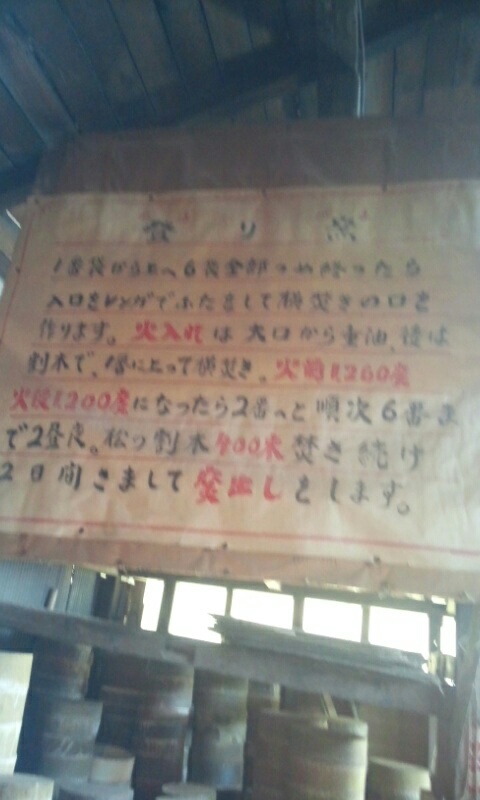 登り窯
1番袋から上へ6袋全部つめ終ったら
入口をレンガでふたをして横焚きの口を
作ります。火入れは大口から重油、後は
割木で、1番にとって横焚き。火前1.260度
火後1.200度になったら2番へと順次6番ま
で2昼夜。松の割木900束焚き続け
2日間さまして窯出しをします。